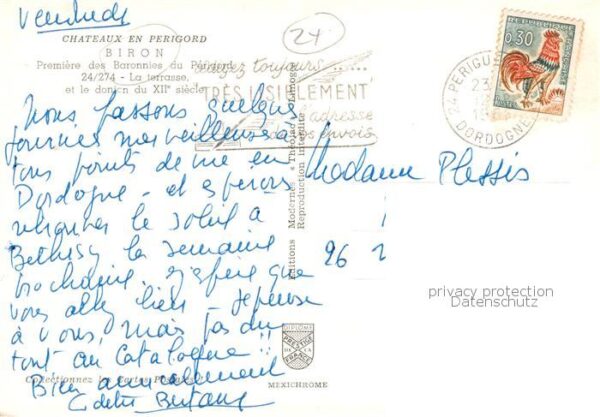 Vendredi
CHATEAUX EN PERIGORD
BIRON
Première des Baronnies du Périgord
24/274 - La terrasse,
et le donjon du XIIe siècle
24
toujours
TRÈS LISIBLEMENT
adresse
vos envois
0,30
24 PERIGUEUX
23
DORDOGNE
Nous passons quelques
journées merveilleuses à
tous points de vue en
Dordogne - et espérons
retrouver le soleil à
Bethisy la semaine
prochaine. J'espère que
vous allez bien - Je pense
à vous, mais pas du
tout au Catalogue !!
Bien amicalement
Madame Plessis
96
privacy protection
Datenschutz
Editions Modernes « Théojac » Limoges
Reproduction interdite
DIPLOME
PRESTIGE
FRANCE
MEXICHROME
Collectionnez les Cartes Postales